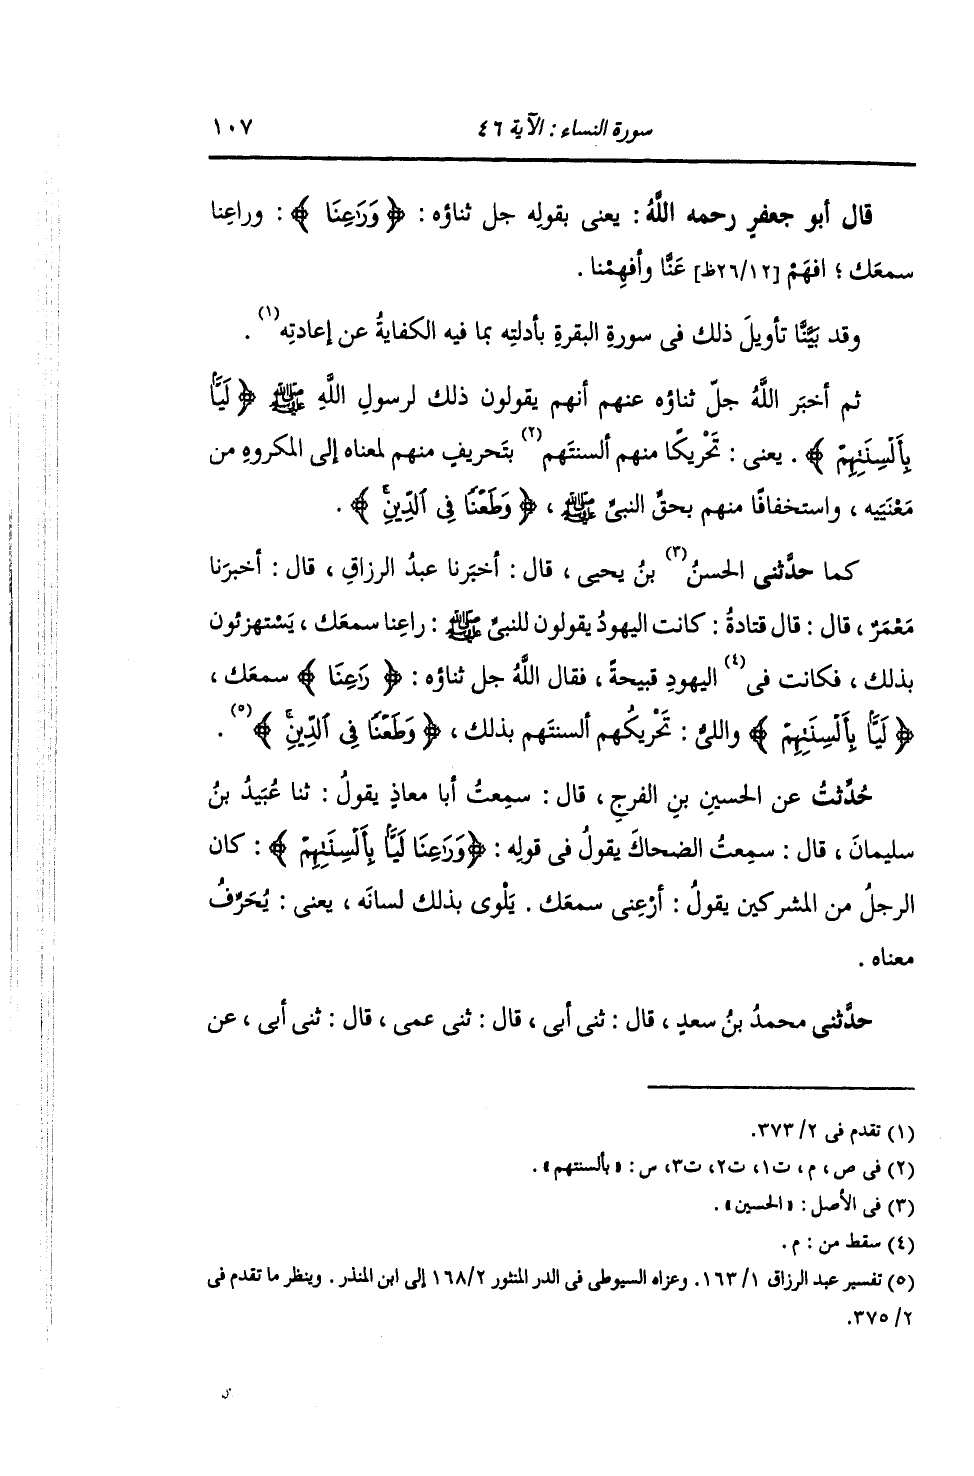 سورة النساء : الآية ٤٦ ١٠٧
قال أبو جعفرٍ رحمه اللَّهُ : يعنى بقولِه جل ثناؤه : ﴿ وَرَاعِنَا ﴾ : وراعِنا
سمعَك ؛ افهَمْ [٢٦/١٢ظ] عَنَّا وأفهِمْنا .
وقد بَيَّنَّا تأويلَ ذلك فى سورةِ البقرةِ بأدلتِه بما فيه الكفايةُ عن إعادتِه (١) .
ثم أخبَر اللَّهُ جلّ ثناؤه عنهم أنهم يقولون ذلك لرسولِ اللَّهِ ﷺ ﴿ لَيًّا
بِأَلْسِنَتِهِمْ ﴾ . يعنى : تَحْرِيكًا منهم ألسنتَهم (٢) بتَحريفٍ منهم لمعناه إلى المكروهِ من
مَعْنَيَيه ، واستخفافًا منهم بحقِّ النبىِّ ﷺ ، ﴿ وَطَعْنًا فِى ٱلدِّينِ ﴾ .
كما حدَّثنى الحسنُ (٣) بنُ يحيى ، قال : أخبَرنا عبدُ الرزاقِ ، قال : أخبرَنا
مَعْمَرٌ ، قال : قال قتادةُ : كانت اليهودُ يقولون للنبىِّ ﷺ : راعِنا سمعَك ، يَسْتهزئون
بذلك ، فكانت فى (٤) اليهودِ قبيحةً ، فقال اللَّهُ جل ثناؤه : ﴿ رَاعِنَا ﴾ سمعَك ،
﴿ لَيًّا بِأَلْسِنَتِهِمْ ﴾ واللىُّ : تَحْرِيكُهم ألسنتَهم بذلك ، ﴿ وَطَعْنًا فِى ٱلدِّينِ ﴾ (٥) .
حُدِّثتُ عن الحسينِ بنِ الفرجِ ، قال : سمِعتُ أبا معاذٍ يقولُ : ثنا عُبَيدُ بنُ
سليمانَ ، قال : سمِعتُ الضحاكَ يقولُ فى قولِه : ﴿وَرَاعِنَا لَيًّا بِأَلْسِنَتِهِمْ ﴾ : كان
الرجلُ من المشركين يقولُ : أَرْعِنى سمعَك . يَلْوى بذلك لسانَه ، يعنى : يُحَرِّفُ
معناه .
حدَّثنى محمدُ بنُ سعدٍ ، قال : ثنى أبى ، قال : ثنى عمى ، قال : ثنى أبى ، عن
(١) تقدم فى ٢/ ٣٧٣.
(٢) فى ص، م، ت١، ت٢، ت٣، س : « بألسنتهم » .
(٣) فى الأصل : « الحسين » .
(٤) سقط من : م .
(٥) تفسير عبد الرزاق ١/ ١٦٣. وعزاه السيوطى فى الدر المنثور ١٦٨/٢ إلى ابن المنذر . وينظر ما تقدم فى
٢/ ٣٧٥.